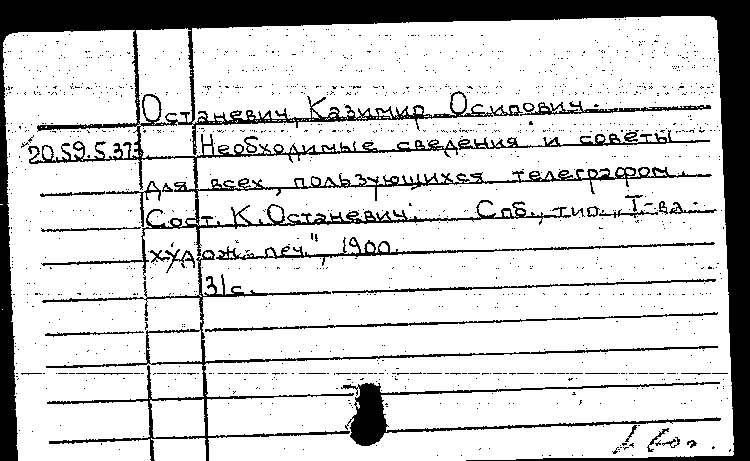 Останевич, Казимир Осипович.
20.59.5.373 Необходимые сведения и советы
для всех, пользующихся телеграфом.
Сост. К. Останевич. Спб., тип. „Т-ва
худож. печ.", 1900.
31 с.